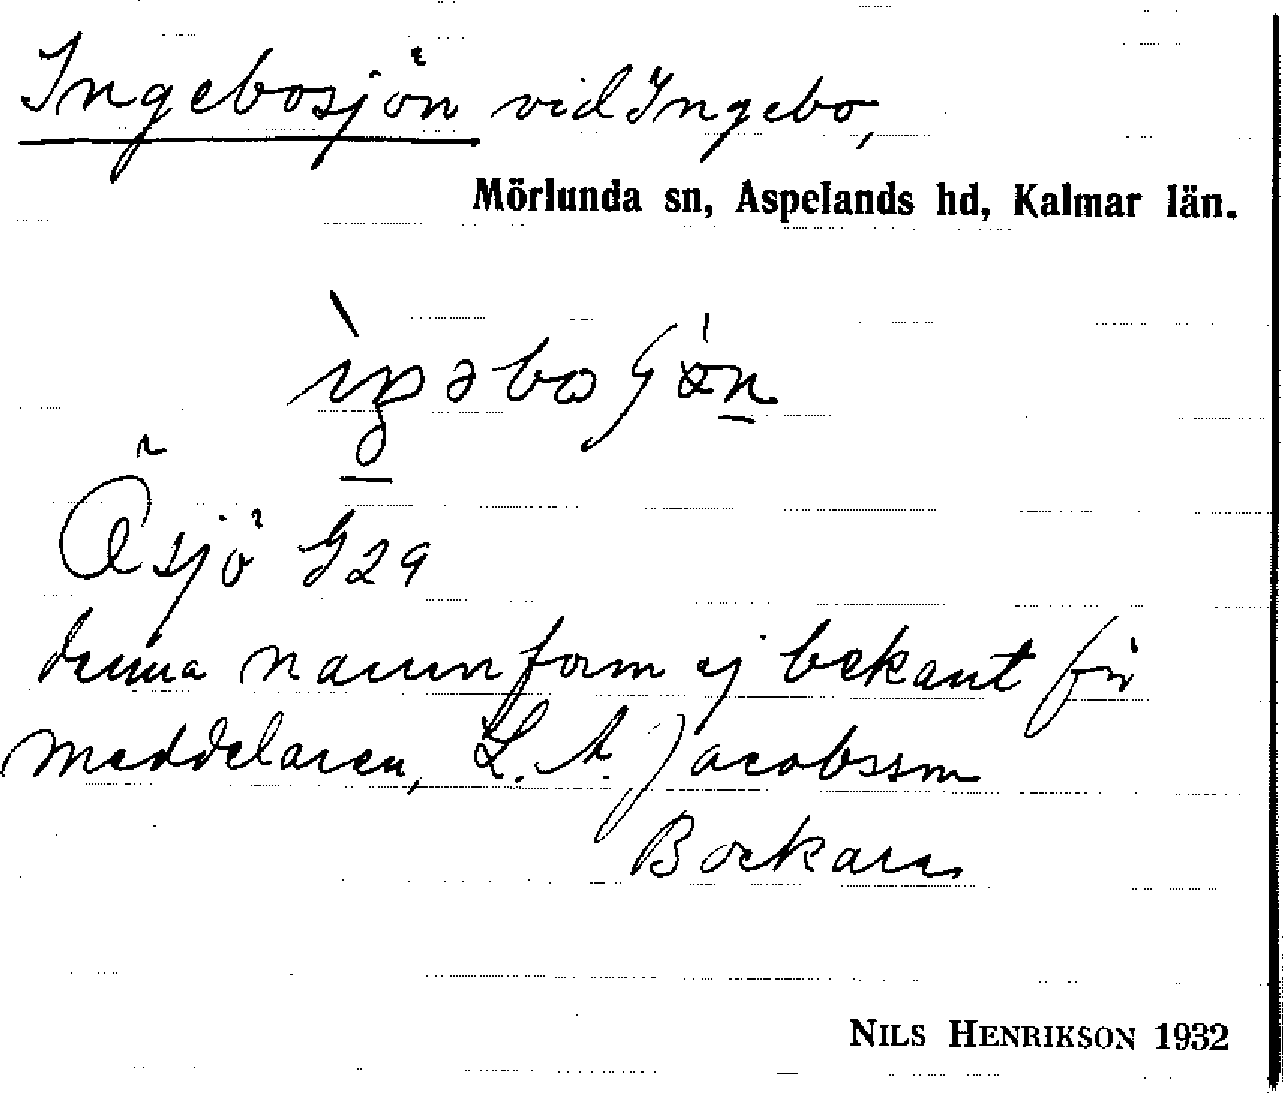 Ingebosjön vid Ingebo,
Mörlunda sn, Aspelands hd, Kalmar län.
Ösjö G 29
denna namnform ej bekant för
meddelaren, L. A. Jacobsson
Bockara
NILS HENRIKSON 1932